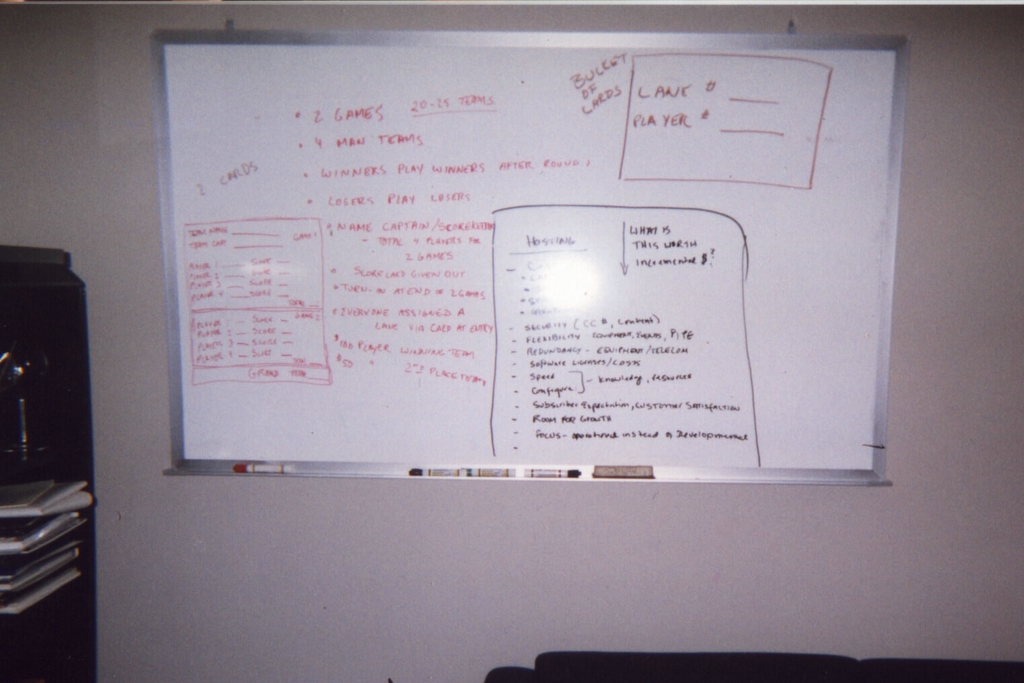 2 CARDS
• 2 GAMES 20-25 TEAMS
• 4 MAN TEAMS
• WINNERS PLAY WINNERS AFTER ROUND 1
• LOSERS PLAY LOSERS
• NAME CAPTAIN/SCOREKEEPER
- TOTAL 4 PLAYERS FOR
2 GAMES
• SCORE CARD GIVEN OUT
• TURN-IN AT END OF 2 GAMES
• EVERYONE ASSIGNED A
LANE VIA CARD AT ENTRY
PLAYER WINNING TEAM
$50 " 2ND PLACE TEAM
TEAM NAME GAME 1
TEAM CAPT
PLAYER 1 SCORE
PLAYER 2 SCORE
PLAYER 3 SCORE
PLAYER 4 SCORE
TOTAL
GAME 2
PLAYER 1 SCORE
PLAYER 2 SCORE
PLAYER 3 SCORE
PLAYER 4 SCORE
GRAND TOTAL
BUCKET
OF
CARDS
LANE #
PLAYER #
HOSTING
WHAT IS
THIS WORTH
Incremental $?
- SECURITY (CC#, Content)
- FLEXIBILITY EQUIPMENT, PIPE
- REDUNDANCY - EQUIPMENT/TELECOM
- Software Licenses/COSTS
- Speed
- Configure - Knowledge, resources
- Subscriber Expectation, CUSTOMER SATISFACTION
- ROOM FOR GROWTH
- FOCUS - operational instead of Developmental
-